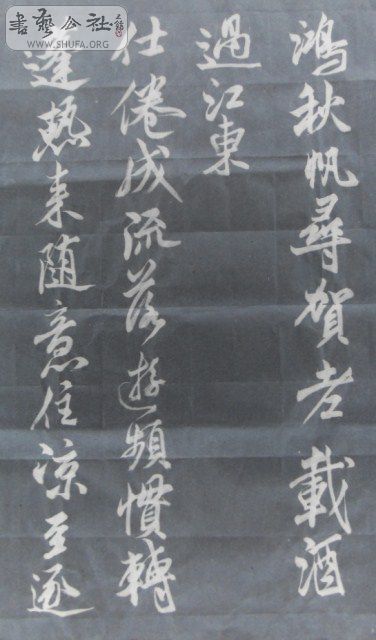 鴻秋帆尋賀老載酒
過江東
仕倦成流落遊頻慣轉
蓬熱来随意住涼至逐
書藝公社
WWW.SHUFA.ORG